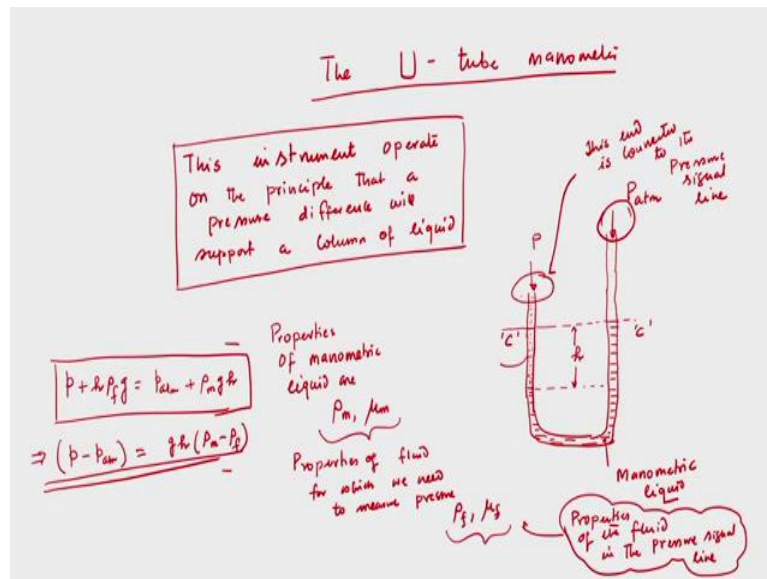 The U-tube manometer
This instrument operate
on the principle that a
pressure difference will
support a column of liquid
This end
is connected
to the
pressure
signal
line
Patm
P
'c'
'c'
h
p + hρfg = patm + ρmgh
⇒ (p - patm) = gh(ρm - ρf)
Properties
of manometric
liquid are
ρm, μm
Properties of fluid
for which we need
to measure pressure
ρf, μf
Manometric
liquid
Properties
of the fluid
in the pressure signal
line